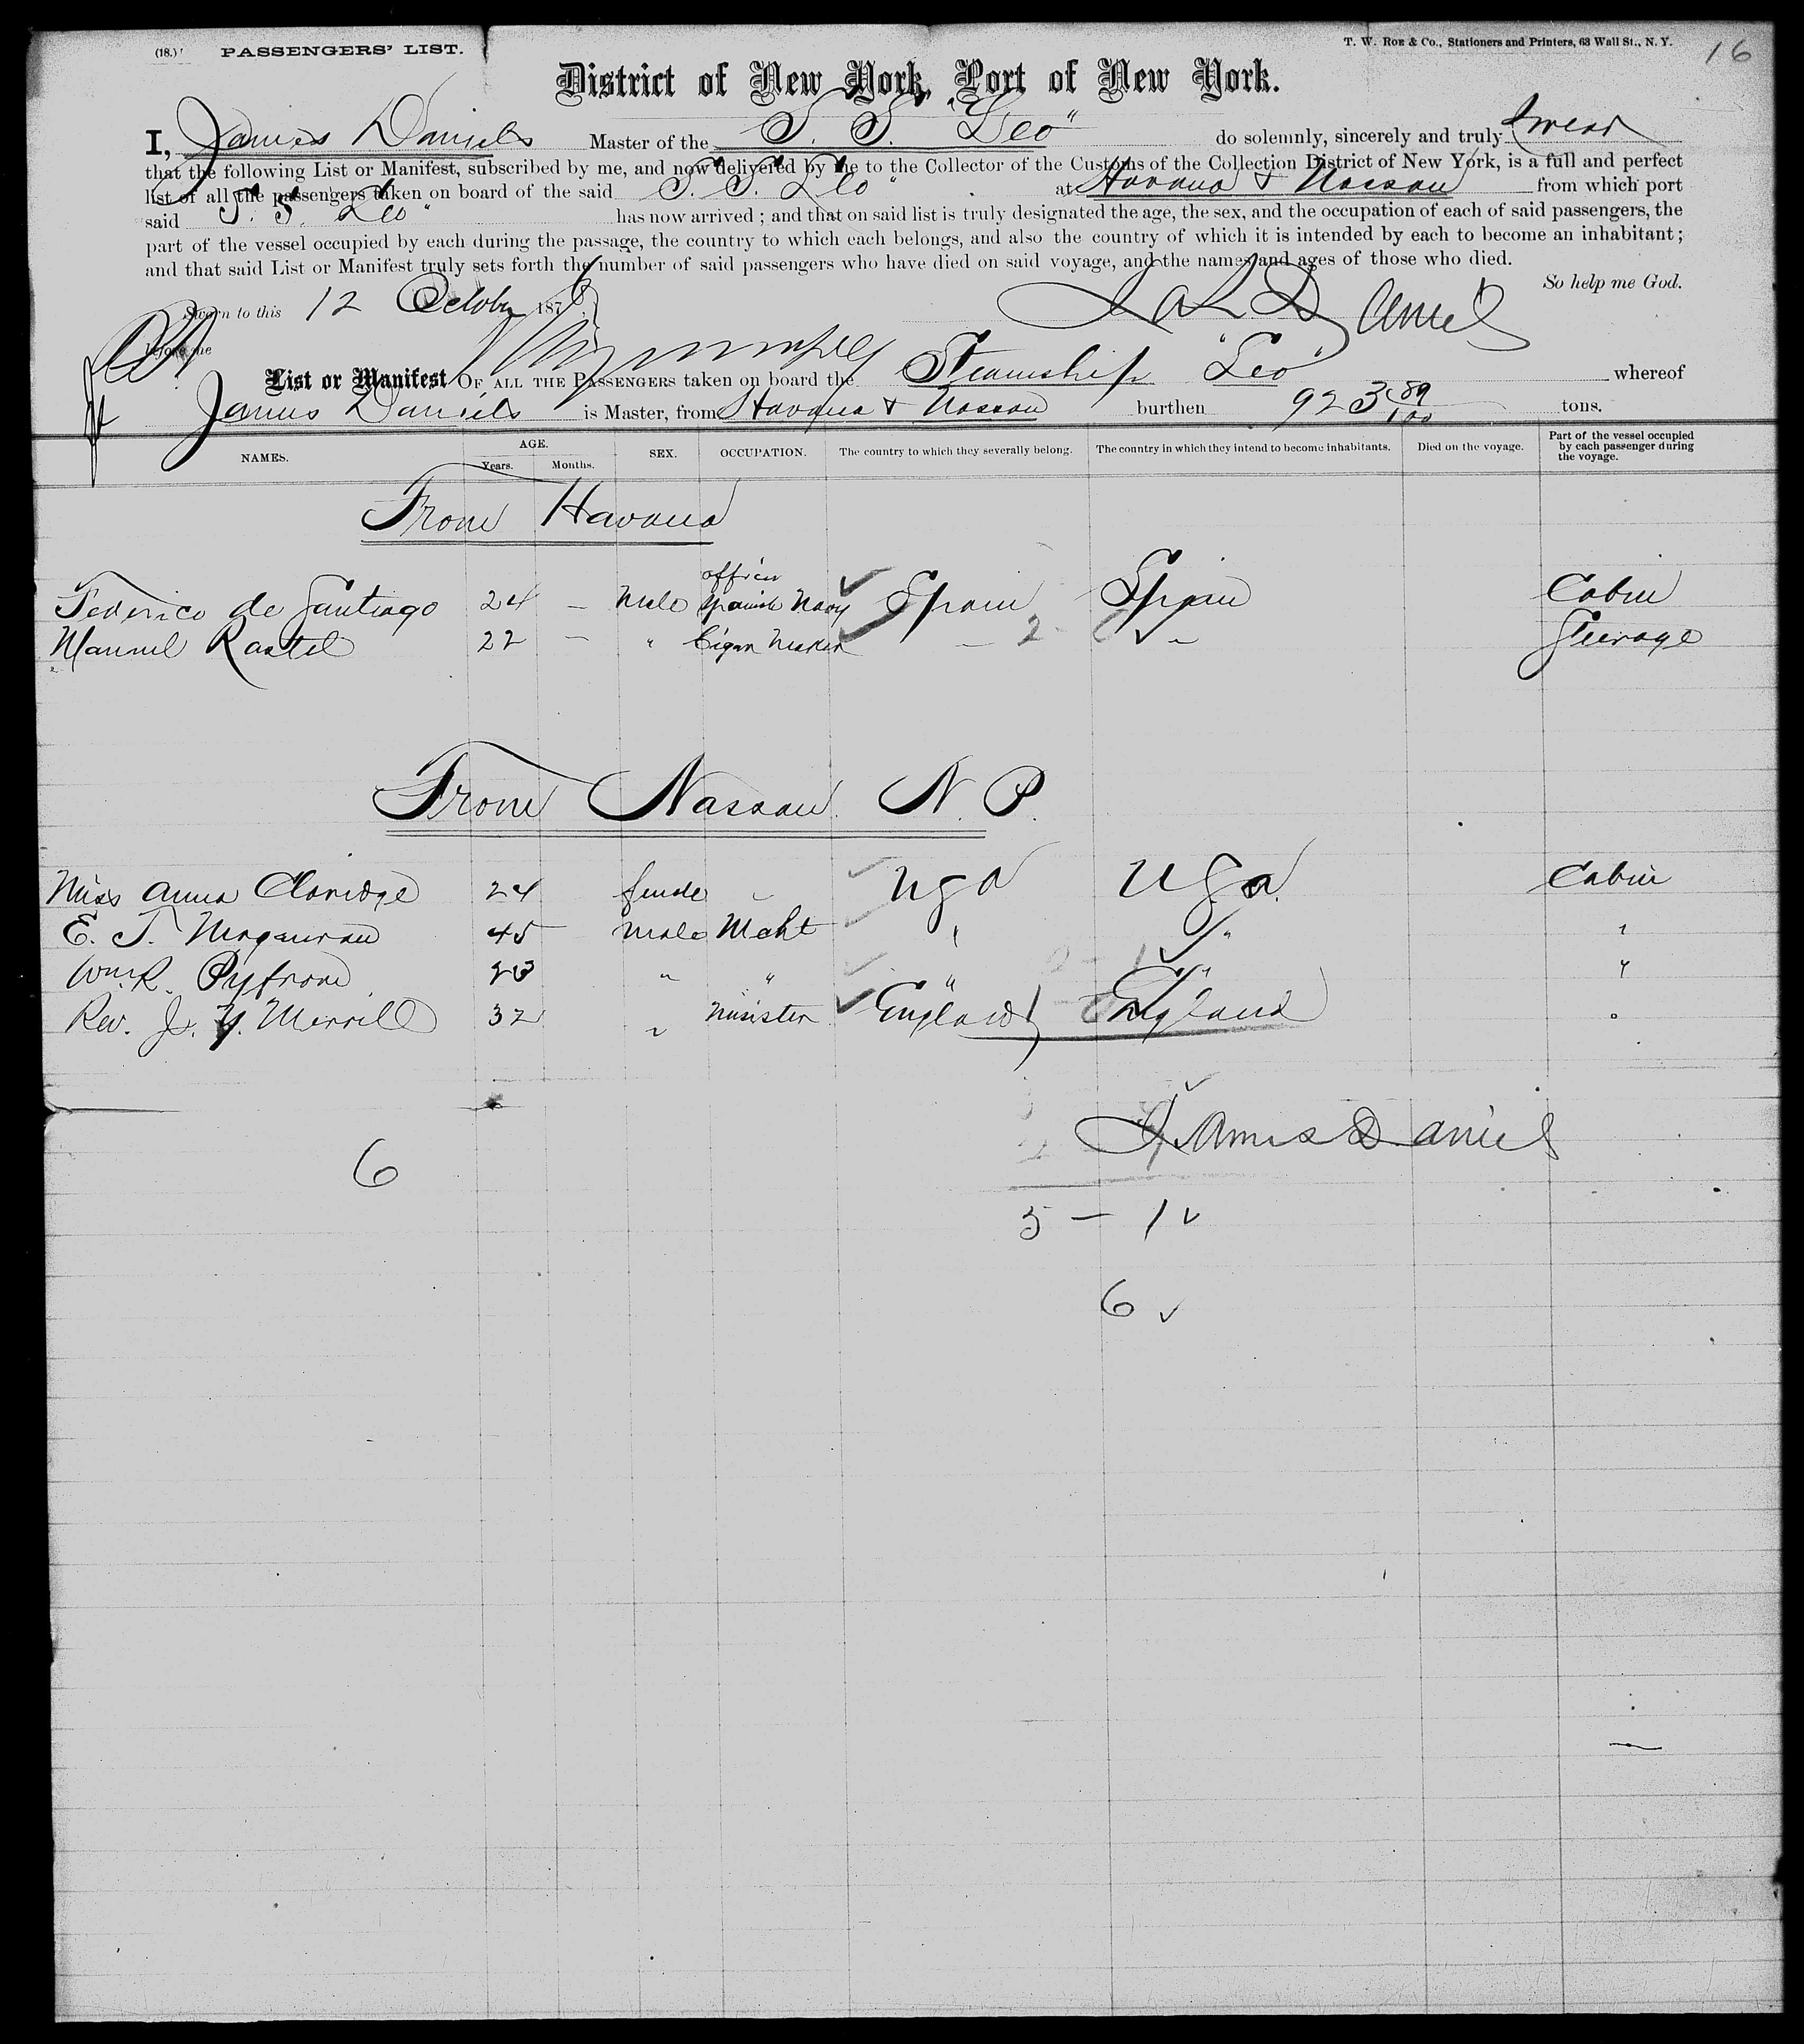 (18.) PASSENGERS' LIST. T. W. ROE & Co., Stationers and Printers, 63 Wall St., N. Y. 16
District of New York, Port of New York.
I, James Daniels Master of the S. S. "Leo" do solemnly, sincerely and truly swear
that the following List or Manifest, subscribed by me, and now delivered by me to the Collector of the Customs of the Collection District of New York, is a full and perfect
list of all the passengers taken on board of the said S. S. Leo" at Havana & Nassau from which port
said S. S. Leo" has now arrived; and that on said list is truly designated the age, the sex, and the occupation of each of said passengers, the
part of the vessel occupied by each during the passage, the country to which each belongs, and also the country of which it is intended by each to become an inhabitant;
and that said List or Manifest truly sets forth the number of said passengers who have died on said voyage, and the names and ages of those who died.
So help me God.
Sworn to this 12 October 187 Daniels
before me
List or Manifest OF ALL THE PASSENGERS taken on board the Steamship "Leo" whereof
James Daniels is Master, from Havana & Nassau burthen 923 89/100 tons.
NAMES. AGE. Years. Months. SEX. OCCUPATION. The country to which they severally belong. The country in which they intend to become inhabitants. Died on the voyage. Part of the vessel occupied by each passenger during the voyage.
From Havana
Federico de Santiago 24 — Male officer Spanish Navy Spain Spain Cabin
Manuel Rastel 22 — " Cigar Maker " 2 " Steerage
From Nassau N. P.
Miss Anna Claridge 24 female " U S A U S a. Cabin
E. T. Magauran 45 Male Mcht " " "
Wm. R. Pyfrom 23 " " " " "
Rev. J. Y. Merrill 32 " Minister England England "
James Daniels
6
5 — 1 ✓
6 ✓